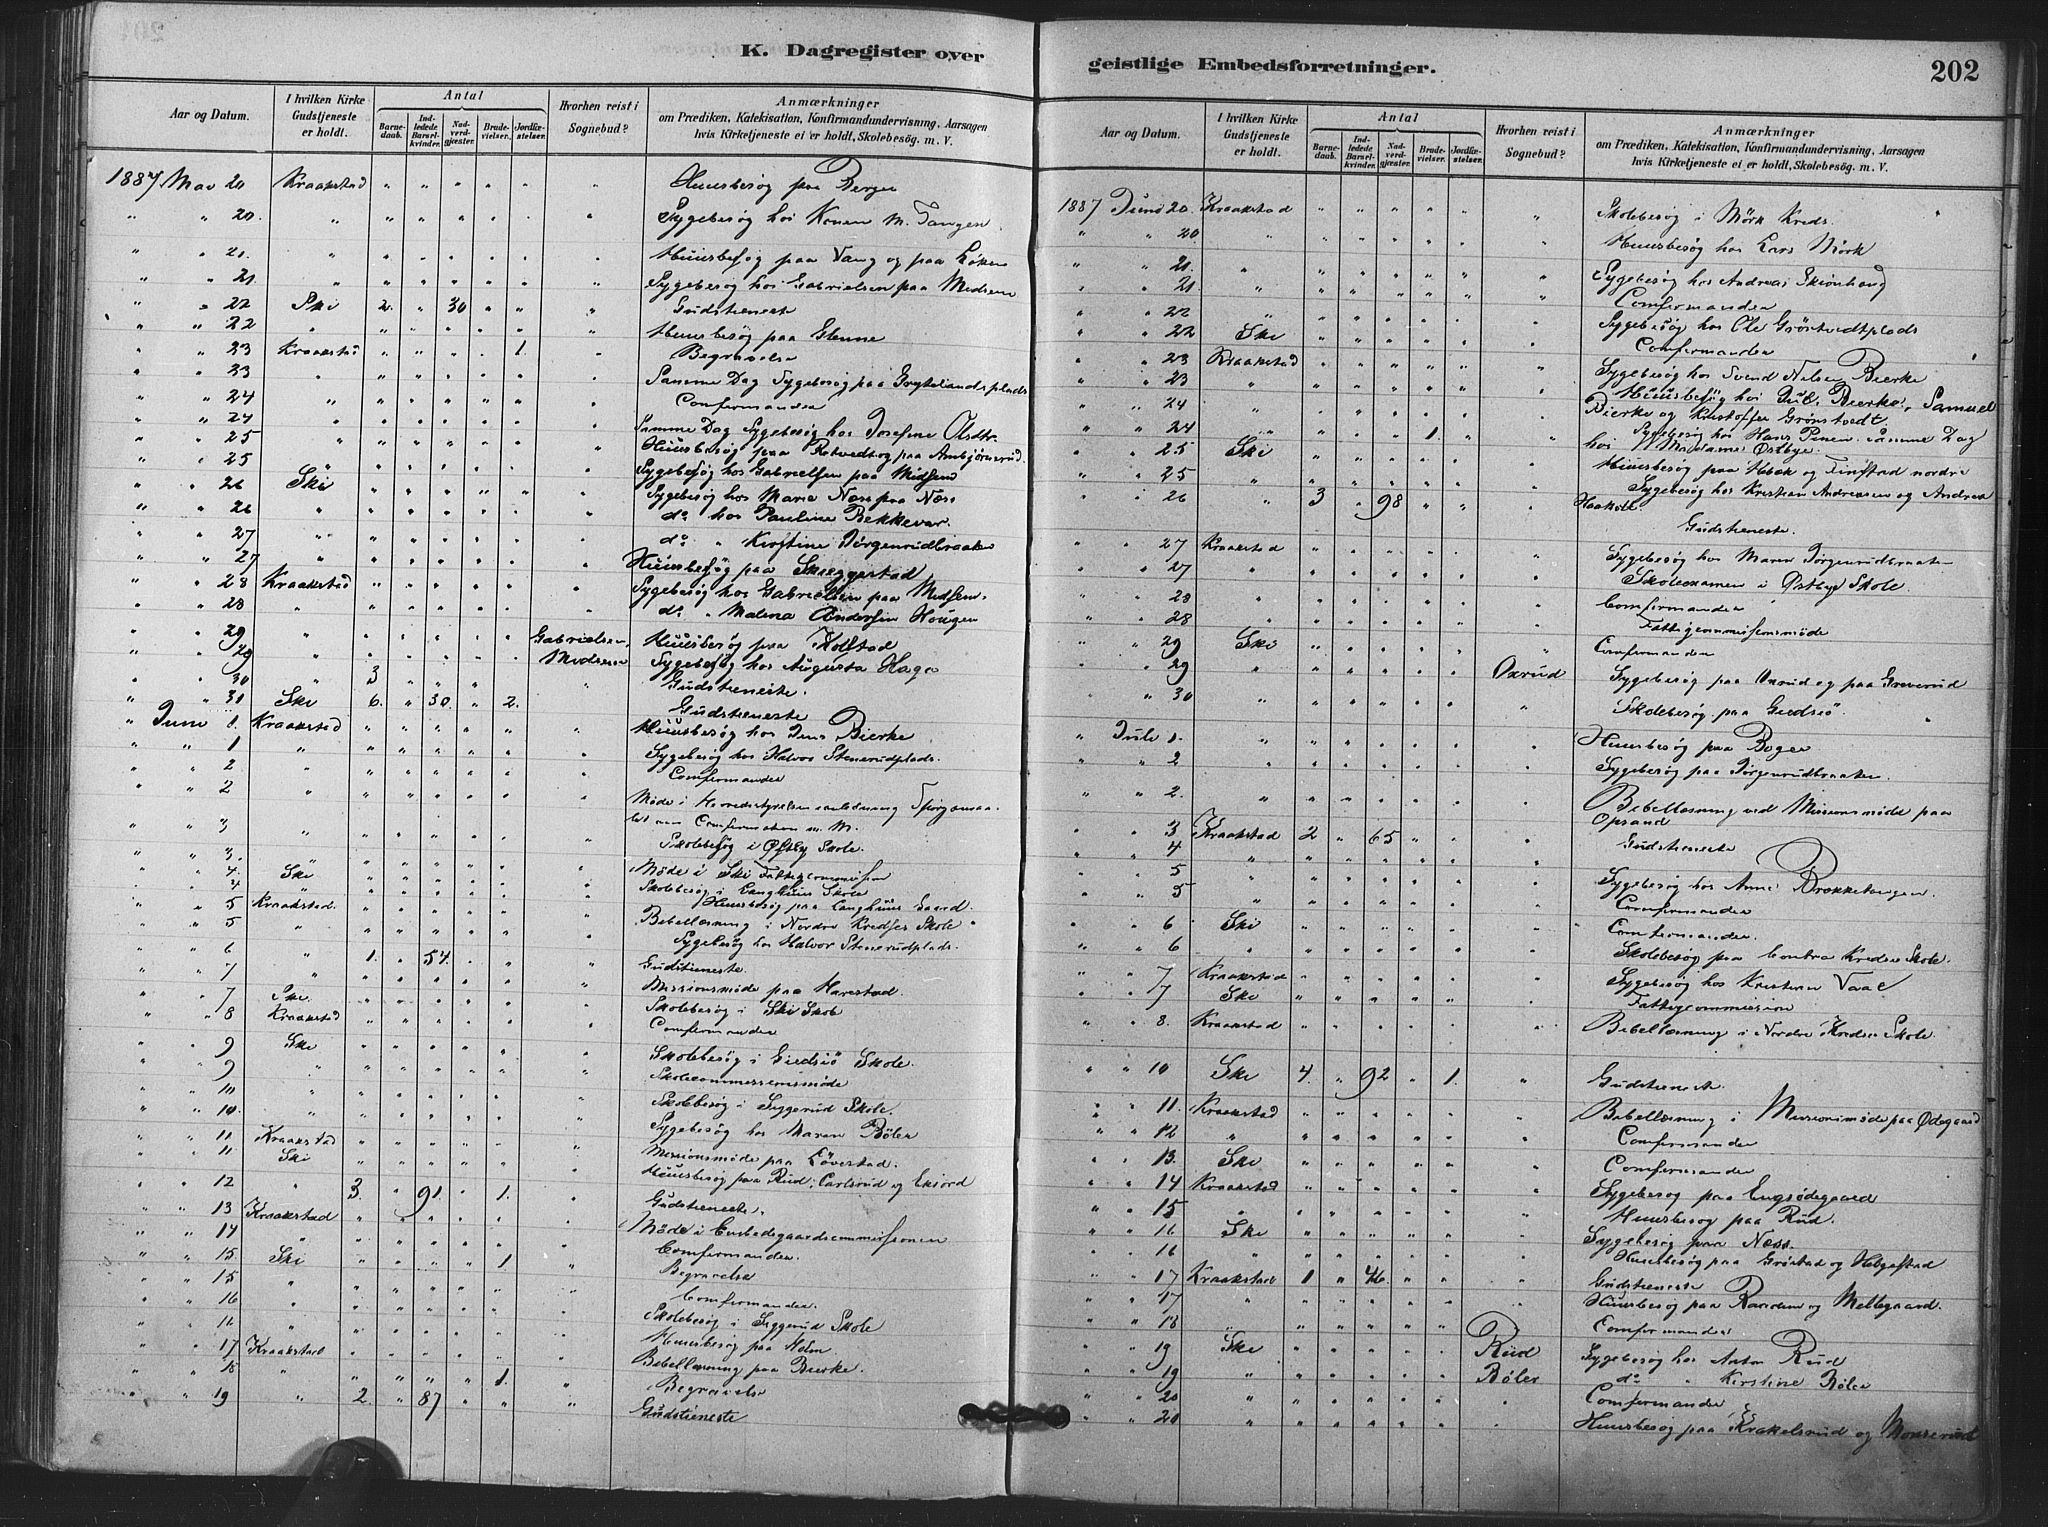 K. Dagregister over
Aar og Datum. I hvilken Kirke Gudstjeneste er holdt. Antal Barnedaab. Indledede Barselkvinder. Nadverdgjæster. Brudevielser. Jordfæstelser. Hvorhen reist i Sognebud? Anmærkninger om Prædiken, Katekisation, Konfirmandundervisning, Aarsagen hvis Kirketjeneste ei er holdt, Skolebesög. m. V.
1887 Mai 20 Kraakstad " " " " " " Huusbesøg paa Berger
" " 20. " " " " " " " Sygebesøg hos Konen M. Tangen
" " 21. " " " " " " " Huusbesøg paa Vang og paa Løken
" " 21 " " " " " " " Sygebesøg hos Gabrielsen paa Midsem
" " 22 Ski 2. " 30 " " " Gudstieneste
" " 22 " " " " " " " Huusbesøg paa Glenne
" " 23 Kraakstad " " " " 1. " Begravelse
" " 23 " " " " " " " Samme Dag Sygebesøg paa Grytelandsplads
" " 24 " " " " " " " Comfermander
" " 24 " " " " " " " Samme Dag Sygebesøg hos Josefine Olsdtr.
" " 25 " " " " " " " Huusbesøg paa Retvedt og paa Anbjørnrud.
" " 25 " " " " " " " Sygebesøg hos Gabrielsen paa Midsem
" " 26 Ski " " " " " " Sygebesøg hos Marie Næss paa Næss
" " 26 " " " " " " " do. hos Pauline Bekkevar.
" " 27 " " " " " " " do. " Kirstine Jørgenrudbraaten
" " 27 " " " " " " " Huusbesøg paa Skeggestad
" " 28 Kraakstad " " " " " " Sygebesøg hos Gabrielsen paa Midsem.
" " 28 " " " " " " " do. " Malena Andersen Hougen
" " 29 " " " " " " Gabrielsen Huusbesøg paa Holstad
" " 29 " " " " " " Midsem Sygebesøg hos Augusta Haga
" " 30 " 3 " " " " " Gudstieneste.
" " 31 Ski 6. " 30. " 2. " Gudstieneste
" Juni 1. Kraakstad " " " " " " Huusbesøg hos Jens Bierke
" " 1 " " " " " " " Sygebesøg hos Halvor Stenerudplads.
" " 2 " " " " " " " Comfermander
" " 2 " " " " " " " Møde i Herredstyrelsen anledning Spørgsmaa-
let om Comfermation m. M.
" " 3 " " " " " " " Skolebesøg i Østby Skole.
" " 3. " " " " " " "
" " 4. Ski " " " " " " Møde i Ski Fattigcommission
" " 4 " " " " " " " Skolebesøg i Langhuus Skole
" " 5 Kraakstad. " " " " " " Huusbesøg paa Langhuus Gaard.
" " 5 " " " " " " " Bibellæsning i Nordre Kredses Skole
Sygebesøg hos Halvor Stenerudplads.
" " 6 " 1. " 54. " " " Gudstieneste.
" " 7 " " " " " " " Missionsmøde paa Harestad.
" " 7 Ski. " " " " " " Skolebesøg i Ski Skole
" " 8 Kraakstad " " " " " " Comfermander
" " 9 Ski " " " " " " Skolebesøg i Giedsiø Skole.
" " 9 " " " " " " " Skolecommissionsmøde
" " 10 " " " " " " " Skolebesøg i Syggerud Skole.
" " 10. " " " " " " " Sygebesøg hos Maren Bøler
" " 11 Kraakstad " " " " " " Missionsmøde paa Løvestad.
" " 11 Ski " " " " " " Huusbesøg paa Rud, Carlsrud og Eksord
" " 12 " 3. " 91. " 1. " Gudstieneste.
" " 13 Kraakstad " " " " " " Møde i Embedsgaardscommissionen
" " 14 " " " " " " " Comfermander.
" " 15. Ski " " " " 1 " Begravelse
" " 15 " " " " " " " Comfermander.
" " 16 " " " " " " " Skolebesøg i Syggerud Skole
" " 16 " " " " " " " Huusbesøg paa Holm
" " 17 Kraakstad " " " " " " Bibellæsning paa Bierke
" " 18 " " " " " 1. " Begravelse
" " 19 " 2. " 87 " " " Gudstieneste
geistlige Embedsforretninger.
202
Aar og Datum. I hvilken Kirke Gudstjeneste er holdt. Antal Barnedaab. Indledede Barselkvinder. Nadverdgjæster. Brudevielser. Jordfæstelser. Hvorhen reist i Sognebud? Anmærkninger om Prædiken, Katekisation, Konfirmandundervisning, Aarsagen hvis Kirketjeneste ei er holdt, Skolebesög. m. V.
1887 Juni 20. Kraakstad " " " " " " Skolebesøg i Mørk Kreds.
" " 20 " " " " " " " Huusbesøg hos Lars Mørk
" " 21. " " " " " " " Sygebesøg hos Andreas Skiønhaug
" " 21 " " " " " " " Comfermander
" " 22 " " " " " " " Sygebesøg hos Ole Grøstvedtplads
" " 22 Ski " " " " " " Comfermander
" " 23 Kraakstad " " " " " " Sygebesøg hos Svend Nilsen Bierke
" " 23 " " " " " " " Huusbesøg hos Jul. Bierke, Samuel
" " 24 " " " " " " " Bierke og Kristoffer Grønstvedt.
" " 24 " " " " 1. " " Sygebesøg hos Hans samme Dag
" " 25 Ski " " " " " " hos Madame Østbye.
" " 25 " " " " " " " Huusbesøg paa Hbek og Finstad nordre
" " 26 " 3 " 98 " " " Sygebesøg hos Kristian Andreasen og Andrea
Haakole
Gudstieneste.
" " 27 Kraakstad " " " " " " Sygebesøg hos Maren Jørgenrudbraaten
" " 27 " " " " " " " Skoleexamen i Østby Skole.
" " 28 " " " " " " " Comfermander
" " 28 " " " " " " " Fattigcommissionsmøde
" " 29 Ski " " " " " " Comfermander
" " 29 " " " " " " Oxrud Sygebesøg paa Oxrud og paa Greverud
" " 30 " " " " " " " Skolebesøg paa Giedsiø.
" Juli 1. " " " " " " " Huusbesøg paa Boger
" " 2 " " " " " " " Sygebesøg paa Jørgenrudbraaten.
" " 2. " " " " " " " Bibellæsning ved Missionsmøde paa
Opsand
" " 3 Kraakstad 2 " 65 " " " Gudstieneste
" " 4 " " " " " " "
" " 5 " " " " " " " Sygebesøg hos Anne Brækketangen.
" " 5 " " " " " " " Comfermander
" " 6 Ski " " " " " " Comfermander.
" " 6 " " " " " " " Skolebesøg paa Contra Kredses Skole.
" " 7 Kraakstad " " " " " " Sygebesøg hos Kristian Vaal
" " 7 Ski " " " " " " Fattigcommission
" " 8. Kraakstad " " " " " " Bibellæsning i Nordre Kredses Skole.
" " 10 Ski 4. " 92 " 1. " Gudstieneste.
" " 11. Kraakstad " " " " " " Bibellæsning i Missionsmøde paa Ødegaard
" " 12 " " " " " " " Comfermander
" " 13. Ski " " " " " " Comfermander
" " 14 Kraakstad " " " " " " Sygebesøg paa Engsødegaard
" " 15 " " " " " " " Huusbesøg paa Rud.
" " 16 Ski " " " " " " Sygebesøg paa Næss.
" " 16 " " " " " " " Huusbesøg paa Grøstad og Helgestad
" " 17 Kraakstad 1 " 46. " " " Gudstieneste
" " 17 " " " " " " " Huusbesøg paa Randem og Mellegaard.
" " 18 " " " " " " " Comfermander
" " 19 Ski " " " " " Rud Sygebesøg hos Anton Rud
" " 19 " " " " " " Bøler do. " Kirstine Bøler
" " 20 " " " " " " " Comfermander
" " 20 " " " " " " " Huusbesøg paa Krakelsrud og Monserud